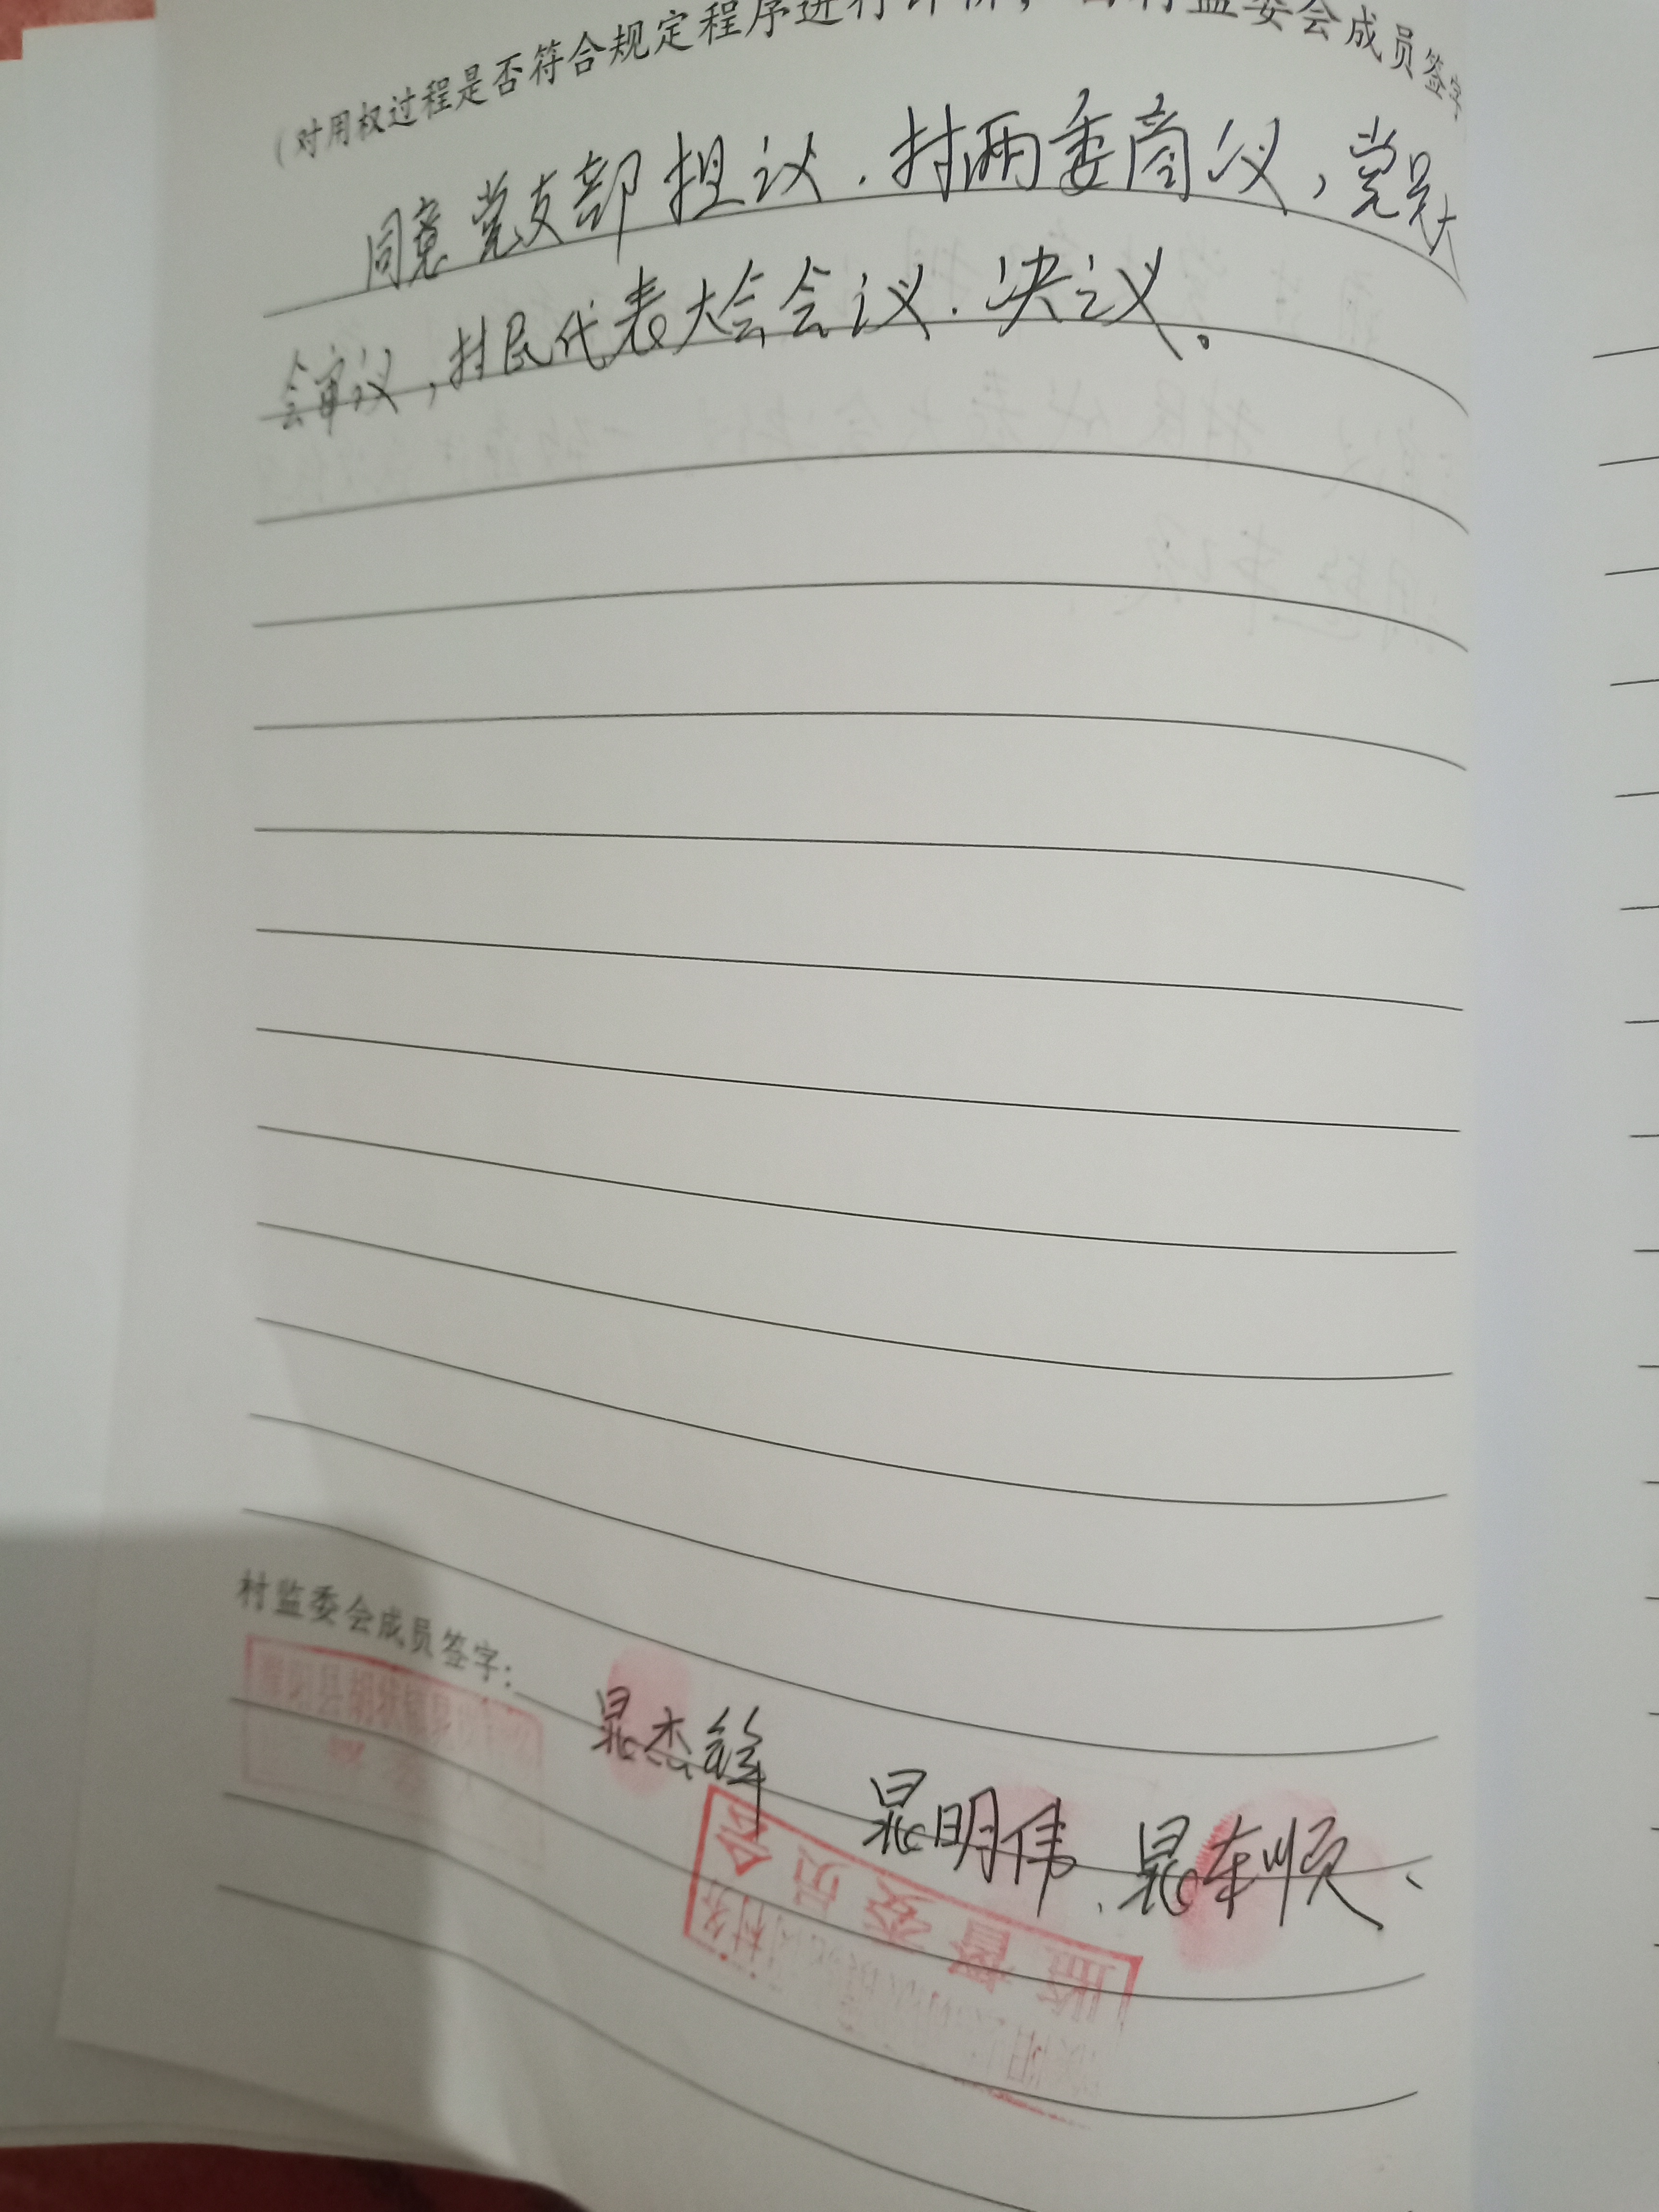 (对用权过程是否符合规定程序进行评价，由村监委会成员签字
同意党支部提议．村两委商议，党员大
会审议，村民代表大会会议．决议。
村监委会成员签字：
晁杰锋 晁明伟、晁本顺、
监督委员会